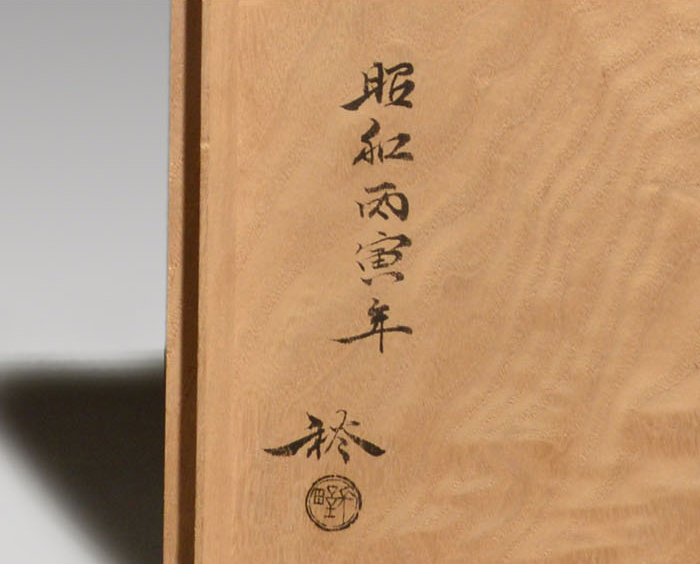 昭和丙寅年